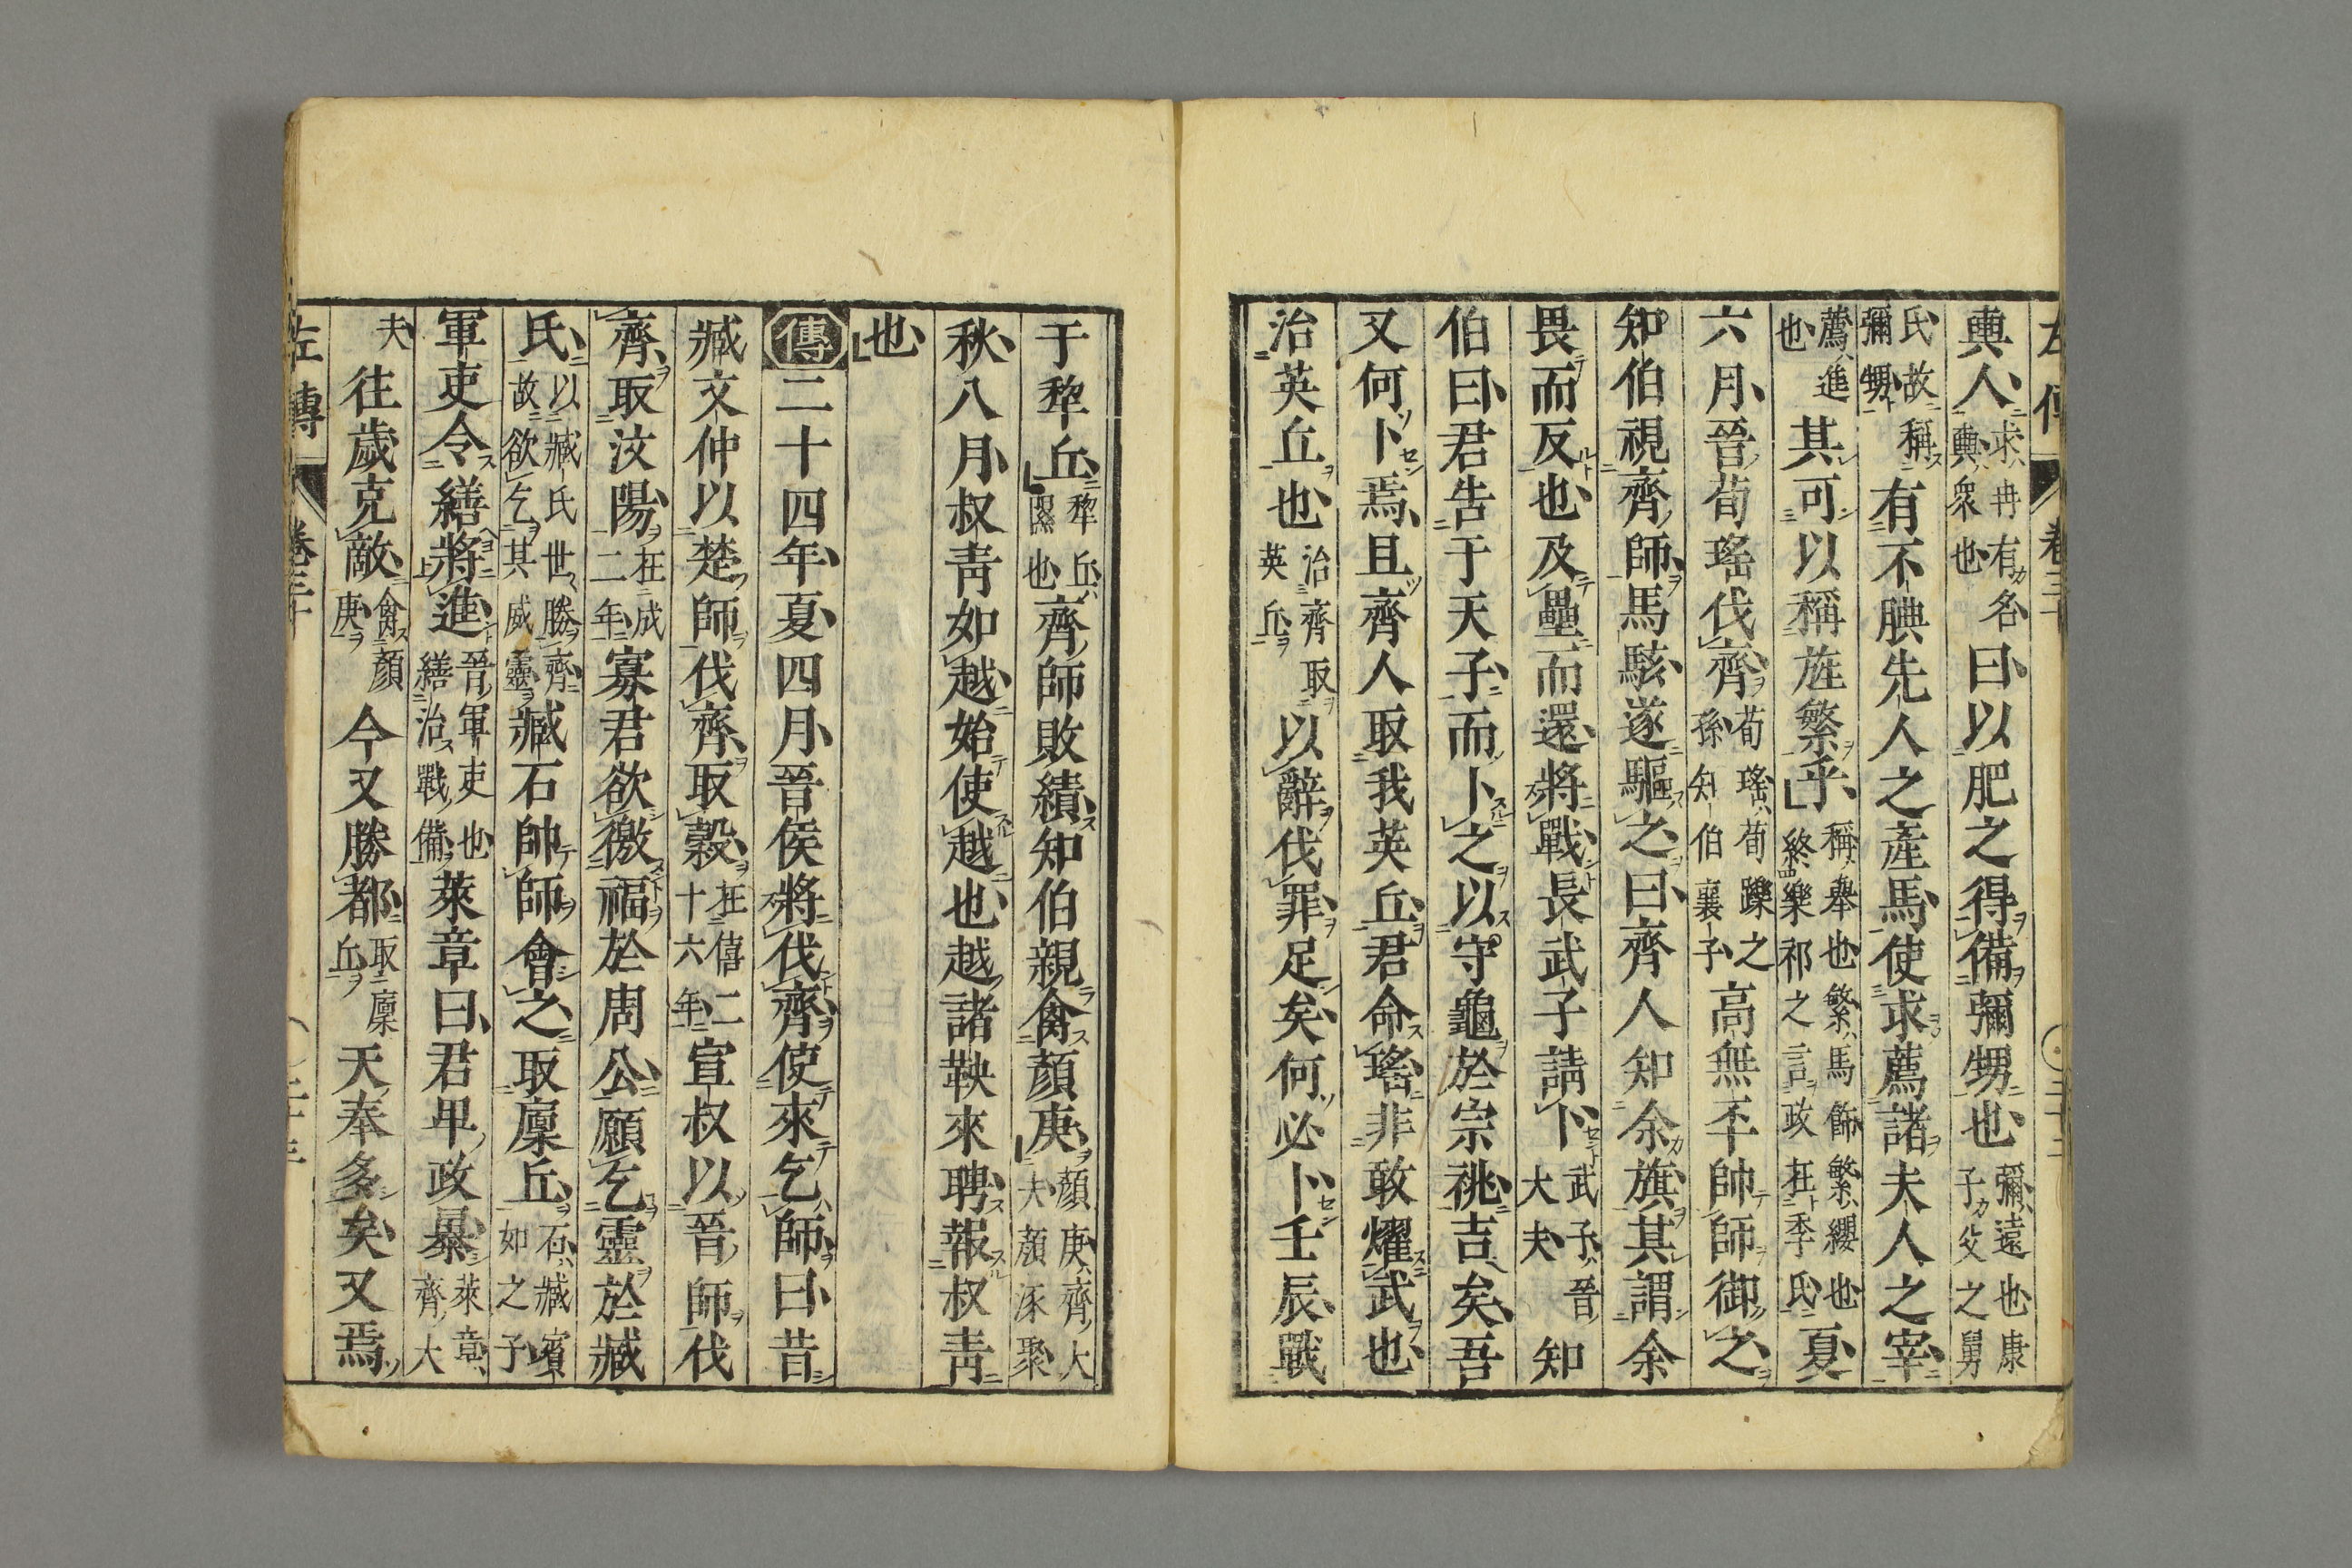 左傳 卷三十
輿人求冉有名輿衆也曰以肥之得備彌甥也彌遠也康子父之舅
氏故稱彌甥有不腆先人之產馬使求薦諸夫人之宰
薦進也其可以稱旌繁乎稱舉也繁馬飾繁纓也終樂祁之言政在季氏夏
六月晉荀瑤伐齊荀瑤荀躒之孫知伯襄子高無㔻帥師御之
知伯視齊師馬駭遂驅之曰齊人知余旗其謂余
畏而反也及壘而還將戰長武子請卜武子晉大夫知
伯曰君告于天子而卜之以守龜於宗祧吉矣吾
又何卜焉且齊人取我英丘君命瑤非敢燿武也
治英丘也治齊取英丘以辭伐罪足矣何必卜壬辰戰
于犂丘犂丘隰也齊師敗績知伯親禽顏庚顏庚齊大夫顏涿聚
秋八月叔青如越始使越也越諸鞅來聘報叔青
也
傳二十四年夏四月晉侯將伐齊使來乞師曰昔
臧文仲以楚師伐齊取穀在僖二十六年宣叔以晉師伐
齊取汶陽在成二年寡君欲徼福於周公願乞靈於臧
氏以臧氏世勝齊故欲乞其威靈臧石帥師會之取廩丘石臧賓如之子
軍吏令繕將進晉軍吏也繕治戰備萊章曰君卑政暴萊章齊大
夫往歲克敵禽顏庚今又勝都取廩丘天奉多矣又焉
左傳 卷三十